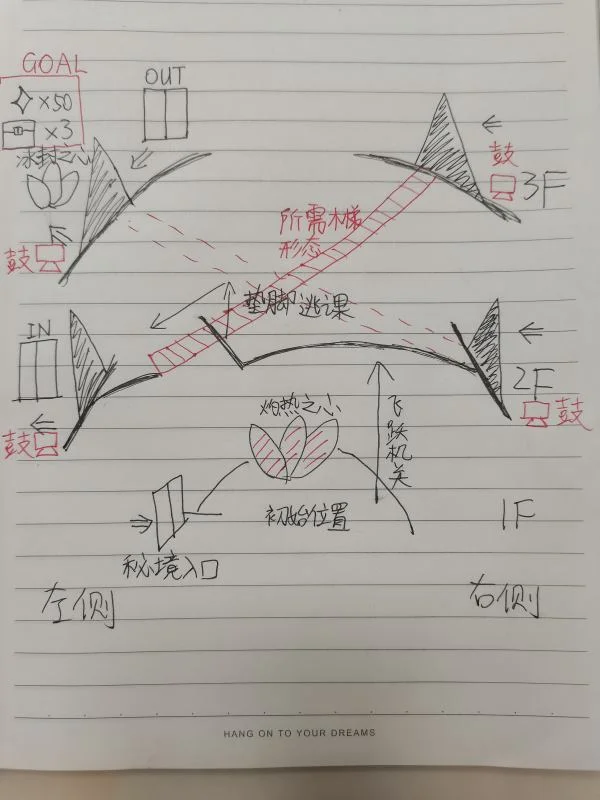 GOAL
×50
×3
冰封之心
OUT
鼓
3F
鼓
所需木梯
形态
垫脚逃课
IN
2F
鼓
鼓
灼热之心
飞跃机关
初始位置
1F
秘境入口
左侧
右侧
HANG ON TO YOUR DREAMS